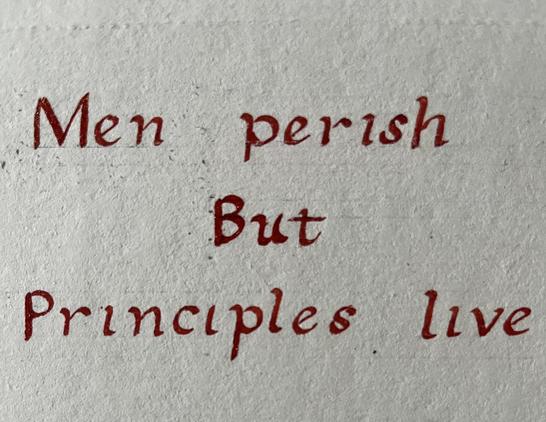 Men perish
But
Principles live